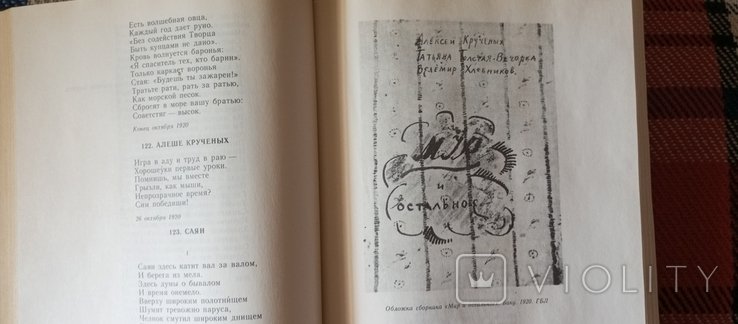 Есть волшебная овца,
Каждый год дает руно.
«Без содействия Творца
Быть купцами не дано».
Кровь волнуется баронья:
«Я спаситель тех, кто барин».
Только каркает воронья
Стая: «Будешь ты зажарен!»
Тратьте рати, рать за ратью,
Как морской песок.
Сбросят в море вашу братью:
Советстяг — высок.
Конец октября 1920
122. АЛЕШЕ КРУЧЕНЫХ
Игра в аду и труд в раю —
Хорошеуки первые уроки.
Помнишь, мы вместе
Грызли, как мыши,
Непрозрачное время?
Сим победиши!
26 октября 1920
123. САЯН
1
Саян здесь катит вал за валом,
И берега из мела.
Здесь думы о бывалом
И время онемело.
Вверху широким полотнищем
Шумят тревожно паруса,
Челнок смутил широким днищем
Алексей Крученых
Татьяна Толстая-Вечорка
Велемир Хлебников.
Мір
и
остальное
Обложка сборника «Мир и остальное». Баку. 1920. ГБЛ
VIOLITY